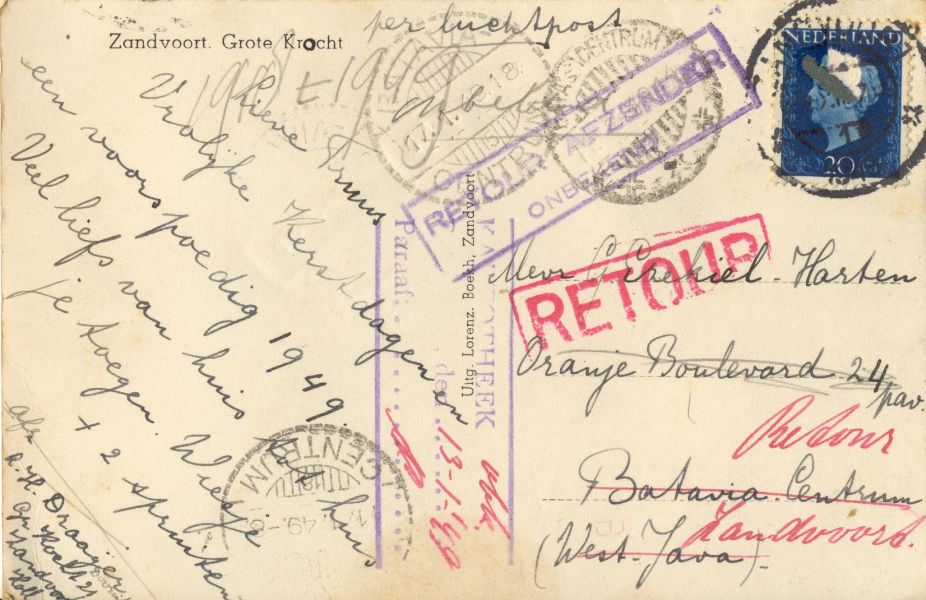 Zandvoort. Grote Krocht
per luchtpost
Lieve Truus
Vrolijke Kerstdagen en
een voorspoedig 1949.
Veel liefs van huis tot huis
je toegen. Wiesje
+ 2 spruiten
afz
Zandvoort
Uitg. Lorenz. Boekh, Zandvoort
NEDERLAND
20
CENTRUM
RETOUR AFZENDER
ONBEKEND
KARTOTHEEK
Paraaf:
ded
13-1-49
RETOUR
Mevr G. Ezekiel-Harten
Oranje Boulevard 24
pav.
Retour
Batavia-Centrum
Zandvoort.
(West-Java)
CENTRUM
49